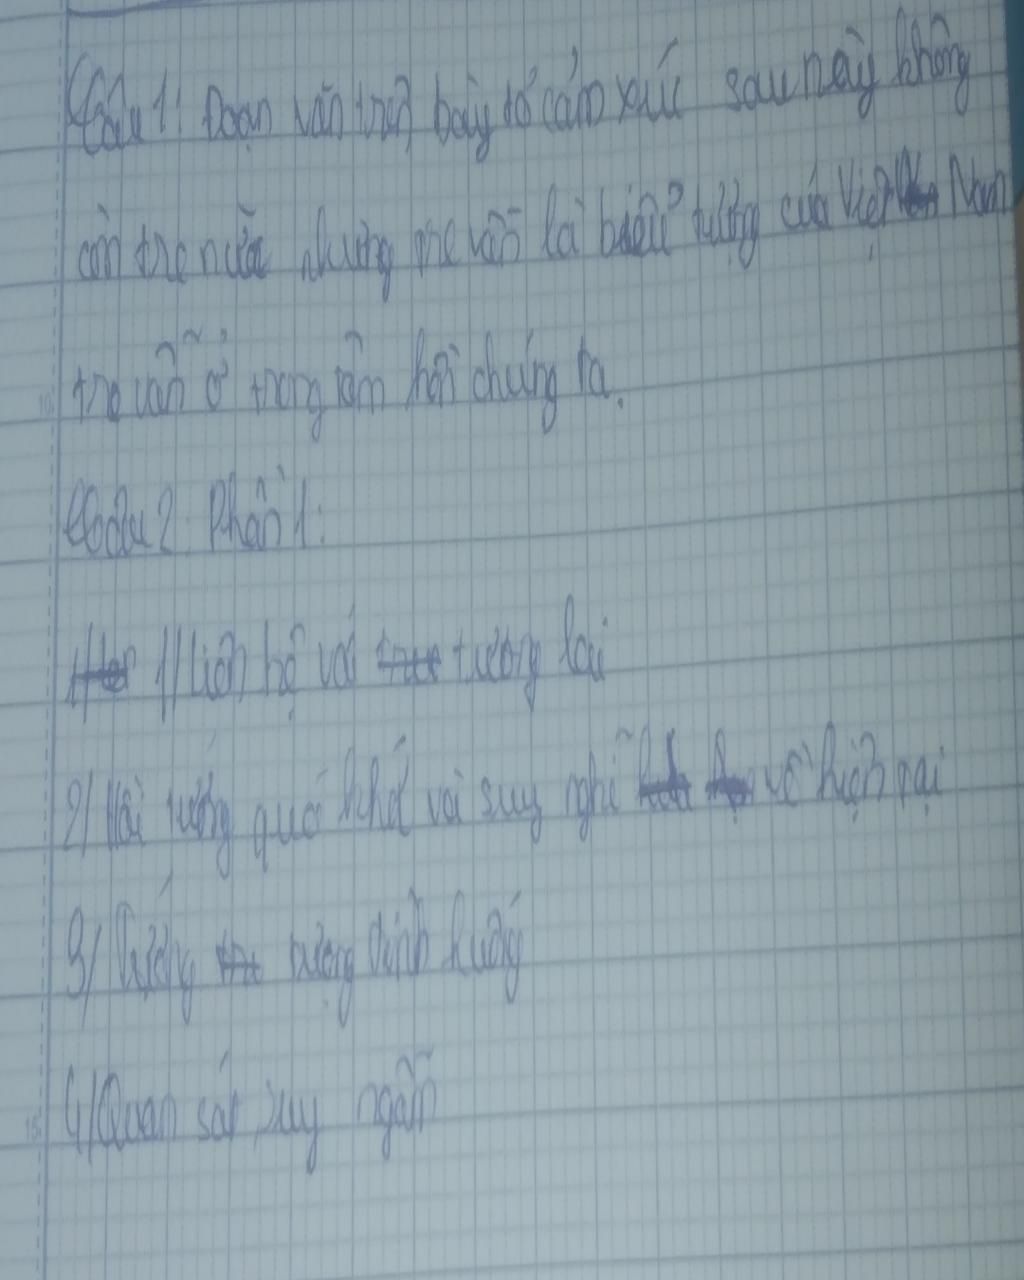 Câu 1: Đoạn văn trên bày tỏ cảm xúc sau này không
còn tre nữa nhưng tre vẫn là biểu tượng của Việt Nam
tre vẫn ở trong tâm hồn chúng ta.
Câu 2: Phần 1:
1/ Liên hệ với tương lai
2/ Hồi tưởng quá khứ và suy nghĩ về hiện tại
3/ Tưởng tượng tình huống
4/ Quan sát suy ngẫm